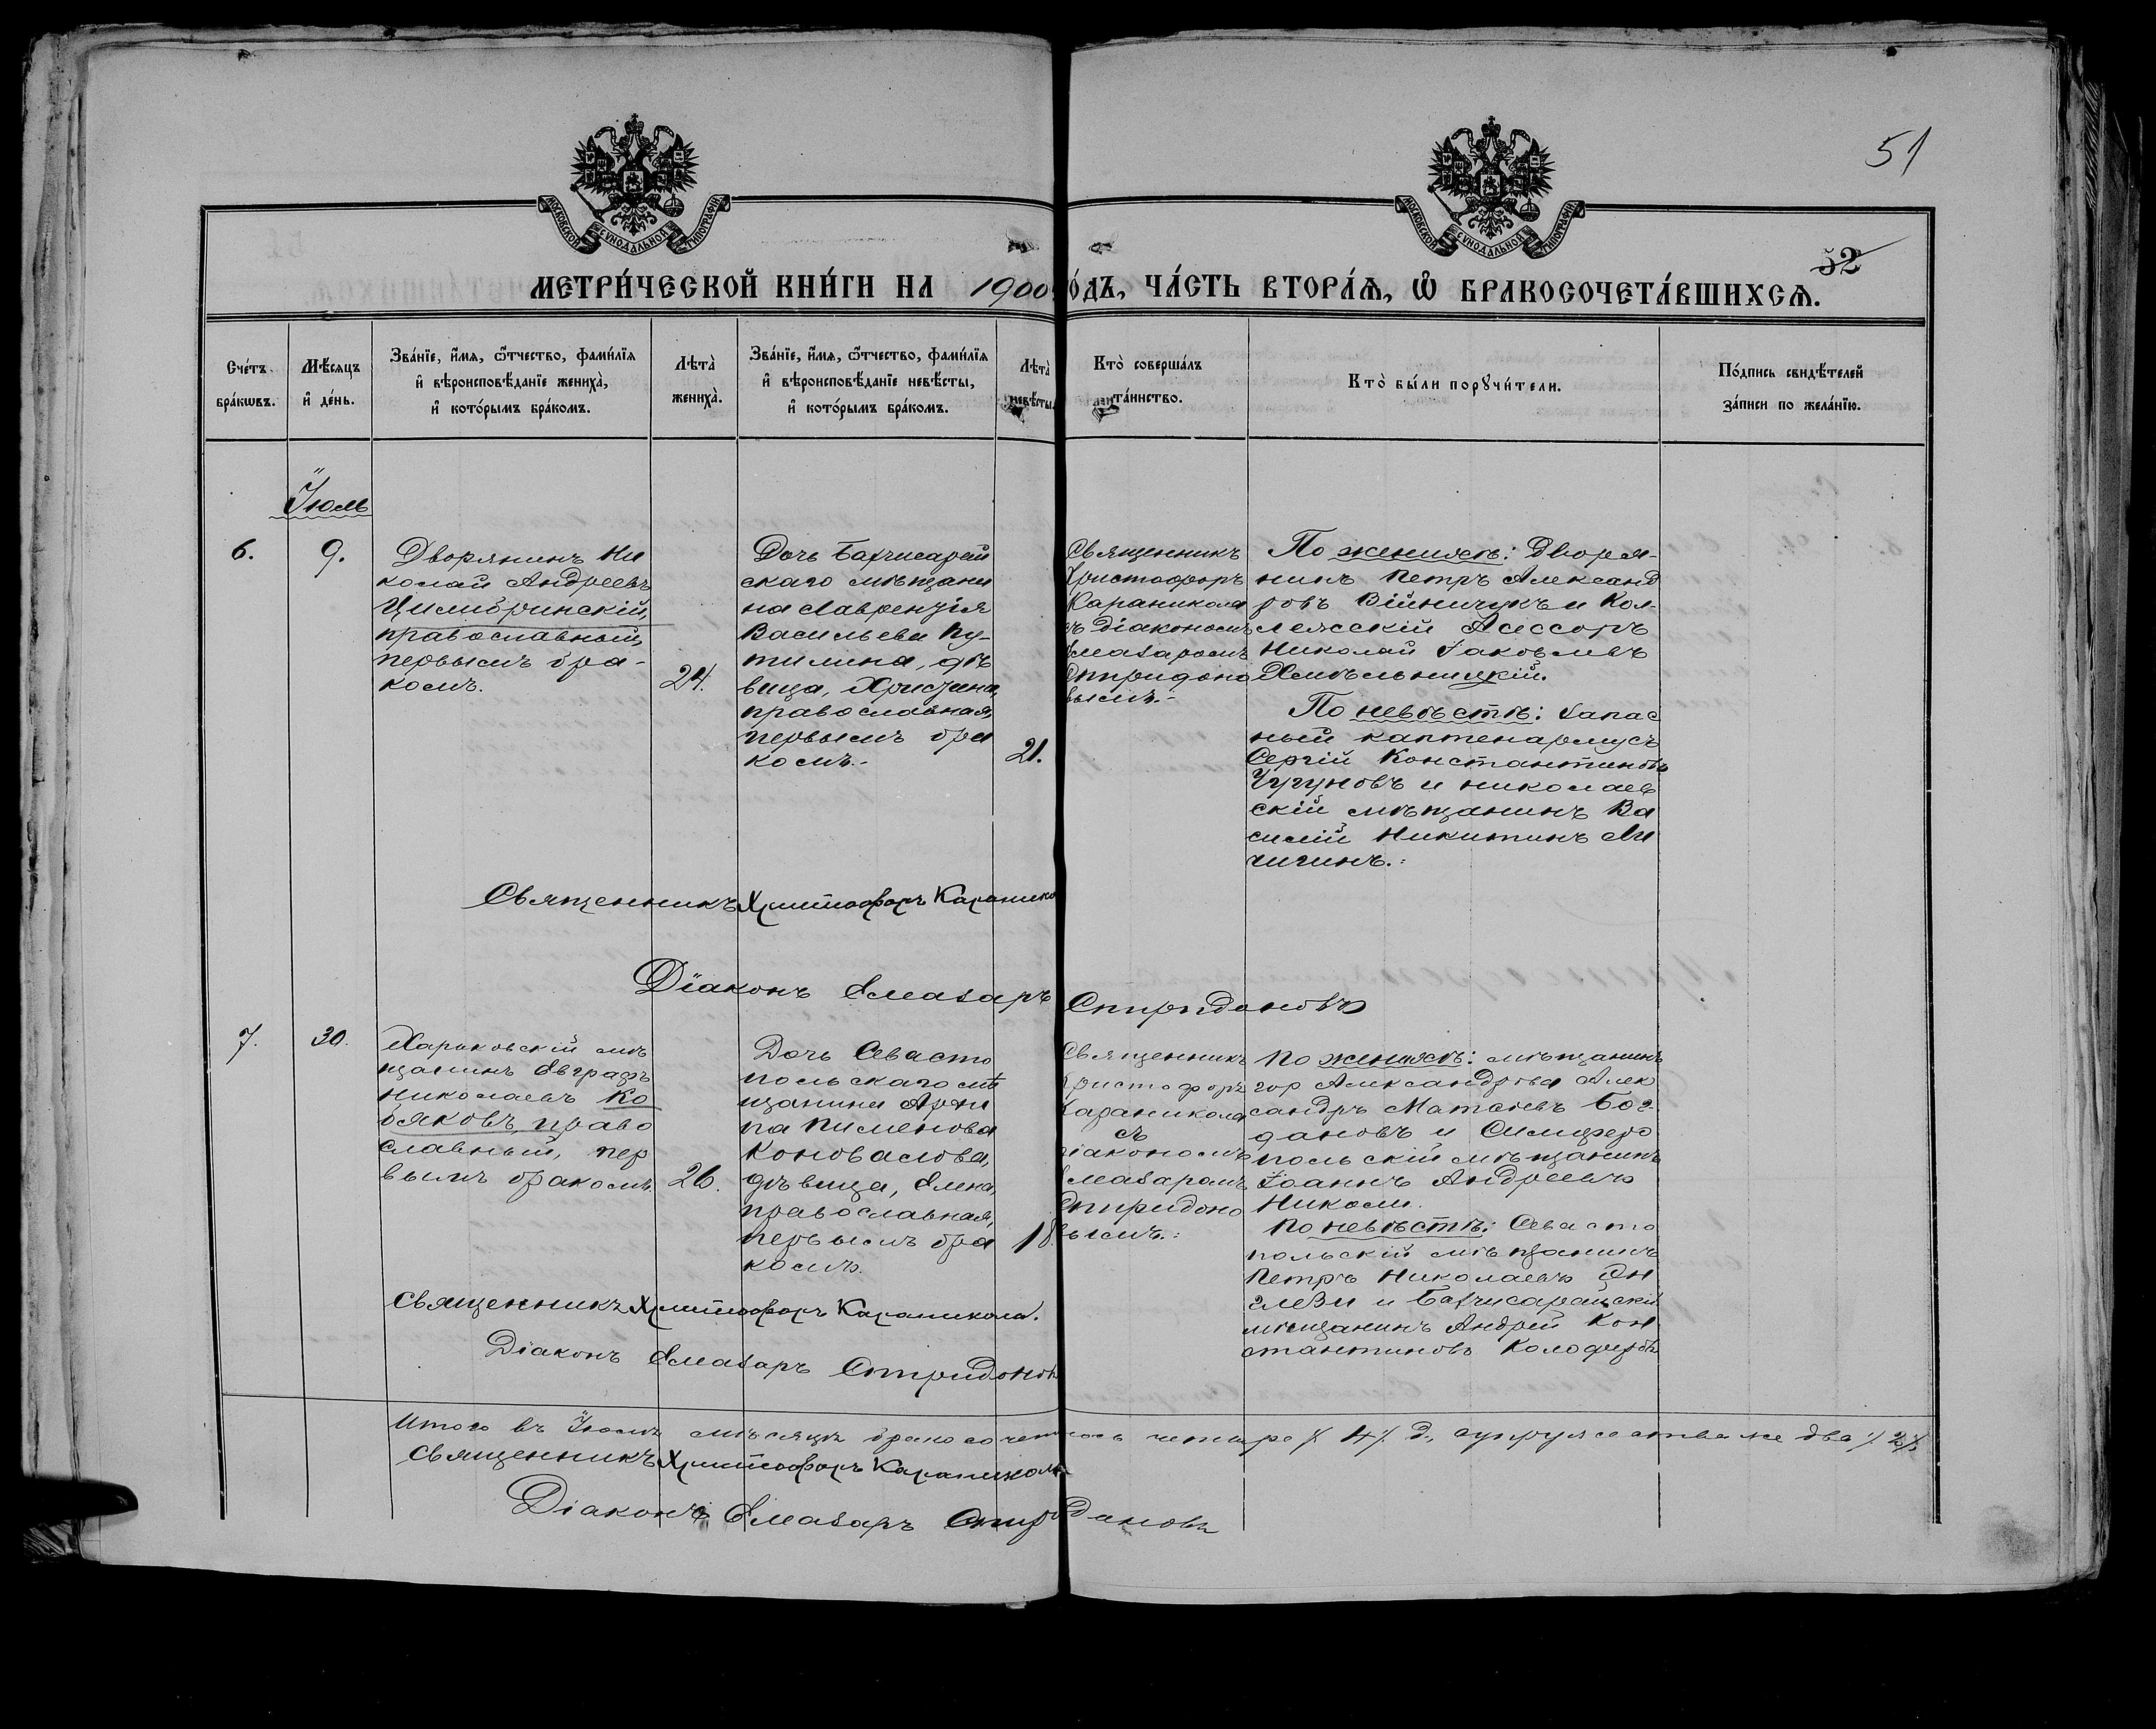 51
МОСКОВСКОЙ СѴНОДАЛЬНОЙ ТИПОГРАФІИ
МОСКОВСКОЙ СѴНОДАЛЬНОЙ ТИПОГРАФІИ
52
МЕТРИ́ЧЕСКОЙ КНИ́ГИ НА 1900 О́ДЪ, ЧА́СТЬ ВТОРА́Ѧ, Ѡ БРАКОСОЧЕТА́ВШИХСѦ.
Сче́тъ
бра́кѡвъ.
Мѣ́сяцъ
и҆ де́нь.
Зва́нїе, и҆́мя, ѻ҆́тчество, фами́лїя
и҆ вѣроисповѣ́данїе жениха̀,
и҆ кото́рымъ бра́комъ.
Лѣта̀
жениха̀.
Зва́нїе, и҆́мя, ѻ҆́тчество, фами́лїя
и҆ вѣроисповѣ́данїе невѣ́сты,
и҆ кото́рымъ бра́комъ.
Лѣта̀
невѣ́сты.
Кто̀ соверша́лъ
та́инство.
Кто̀ бы́ли порꙋчи́тели.
По́дпись свидѣ́телей
за́писи по жела́нїю.
Іюль
6.
9.
Дворянинъ Ни
колай Андреевъ
Цимбринскій,
православный,
первымъ бра-
комъ.
24.
Дочь Бахчисарай
скаго мѣщани
на Лаврентія
Васильева Пу-
тилина, дѣ
вица, Христина,
православная,
первымъ бра
комъ.-
21.
Священникъ
Христофоръ
Караникола
съ діакономъ
Елазаромъ
Спиридоно
вымъ.-
По женихѣ: Дворя-
нинъ Петръ Александ
ровъ Війничукъ и Кол-
лежскій Асессоръ
Николай Іаковлевъ
Хмѣльницкій.
По невѣстѣ: Запас
ный каптенармусъ
Сергій Константиновъ
Чугуновъ и николаев
скій мѣщанинъ Ва
силій Никитинъ Ли
чигинъ.:
Священникъ Христофоръ Каранико
Діаконъ Елазаръ Спиридоновъ
7.
30.
Харьковскій мѣ
щанинъ Евграфъ
Николаевъ Ко
бяковъ, право
славный, пер
вымъ бракомъ.
26.
Дочь Севасто
польскаго мѣ
щанина Архи
па Пименова
Коновалова,
дѣвица, Елена,
православная,
первымъ бра
комъ.
18.
Священникъ
Христофоръ
Караникола
съ
діакономъ
Елазаромъ
Спиридоно
вымъ.:
По женихѣ: мѣщанинъ
гор Александрова Алек
сандръ Матѳіевъ Бог-
дановъ и Симферо
польскій мѣщанинъ
Іоаннъ Андреевъ
Николи.
По невѣстѣ: Севасто
польскій мѣщанинъ
Петръ Николаевъ
и Бахчисарайскій
мѣщанинъ Андрей Кон
стантиновъ
Священникъ Христофоръ Караникола.
Діаконъ Елазаръ Спиридоновъ
Итого въ Іюлѣ мѣсяцѣ бракосочеталось четыре /. 4 /. д., супружества же два /. 2 /.
Священникъ Христофоръ Караникола
Діаконъ Елазаръ Спиридоновъ